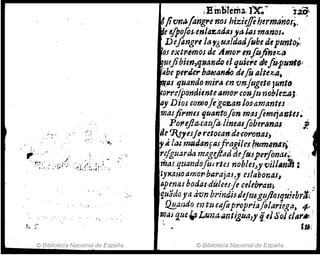 Emblema IX. 129
si vna sangre nos hizieße hermanos,
de esposos enlazadas ya las manos.
Desangre la ygualdad sube de punto,
los extremos de Amor en su fineza
que si bien, quando el quiere de su punto
sabe perder baxando de su alteza,
mas quando mira en vn sugeto junto
correspondiente amor con su nobleza;
ay Dios como se gozan los amantes
mas firmes quanto son mas semejantes.
Por esta causa lineas soberanas
de Reyes se retocan de coronas,
y à las mudanças fragiles humanas
resguarda magestad de sus personas;
mas quando fuertes nobles, y villanas
tyrano amor barajas, y eslabonas,
apenas bodas dulces se celebran,
quãdo ya à vn brindis de su gusto se quiebrã.
Quando en tu casa propria solariega,
mas que la Luna antigua, y q̃ el Sol clara
© Biblioteca Nacional de España
© Biblioteca Nacional de España